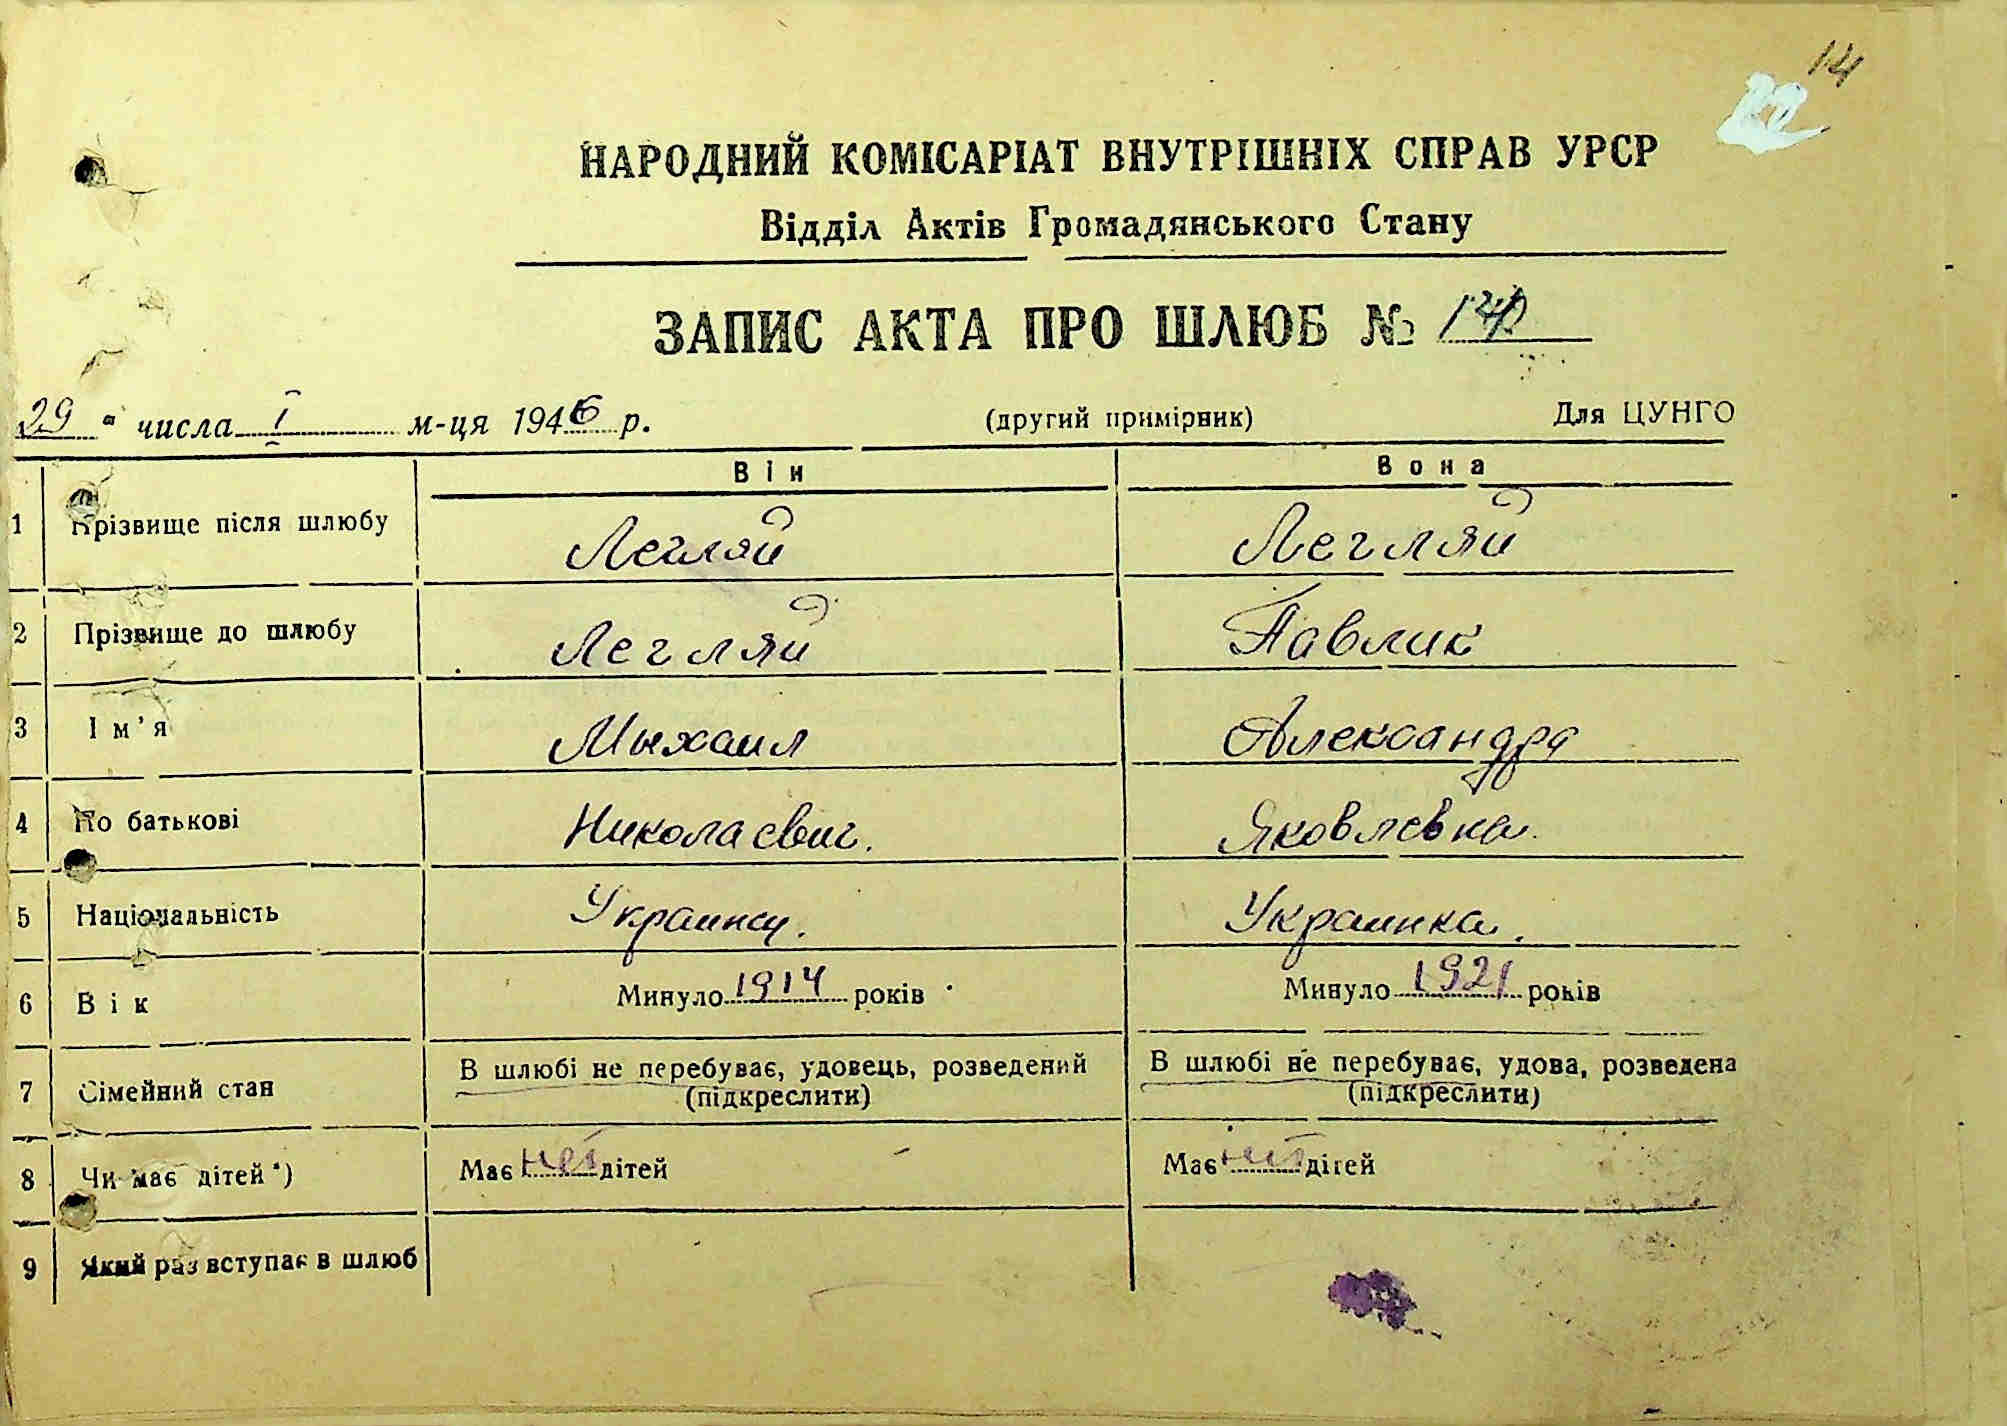 14
НАРОДНИЙ КОМІСАРІАТ ВНУТРІШНІХ СПРАВ УРСР
Відділ Актів Громадянського Стану
ЗАПИС АКТА ПРО ШЛЮБ №
29 " числа I м-ця 1946 р. (другий примірник) Для ЦУНГО
Він Вона
1 Прізвище після шлюбу Легляй Легляй
2 Прізвище до шлюбу Легляй Павлик
3 Ім'я Мыхаил Александра
4 По батькові Николаевич. Яковлевна.
5 Національність Украинец. Украинка.
6 Вік Минуло 1914 років Минуло 1921 років
7 Сімейний стан В шлюбі не перебуває, удовець, розведений (підкреслити) В шлюбі не перебуває, удова, розведена (підкреслити)
8 Чи має дітей *) Має нет дітей Має нет дітей
9 Який раз вступає в шлюб